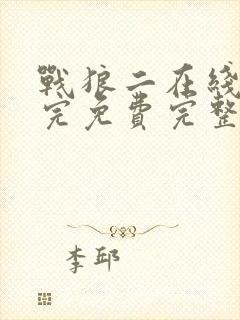 戰狼二在綫
完免費完整
李邱